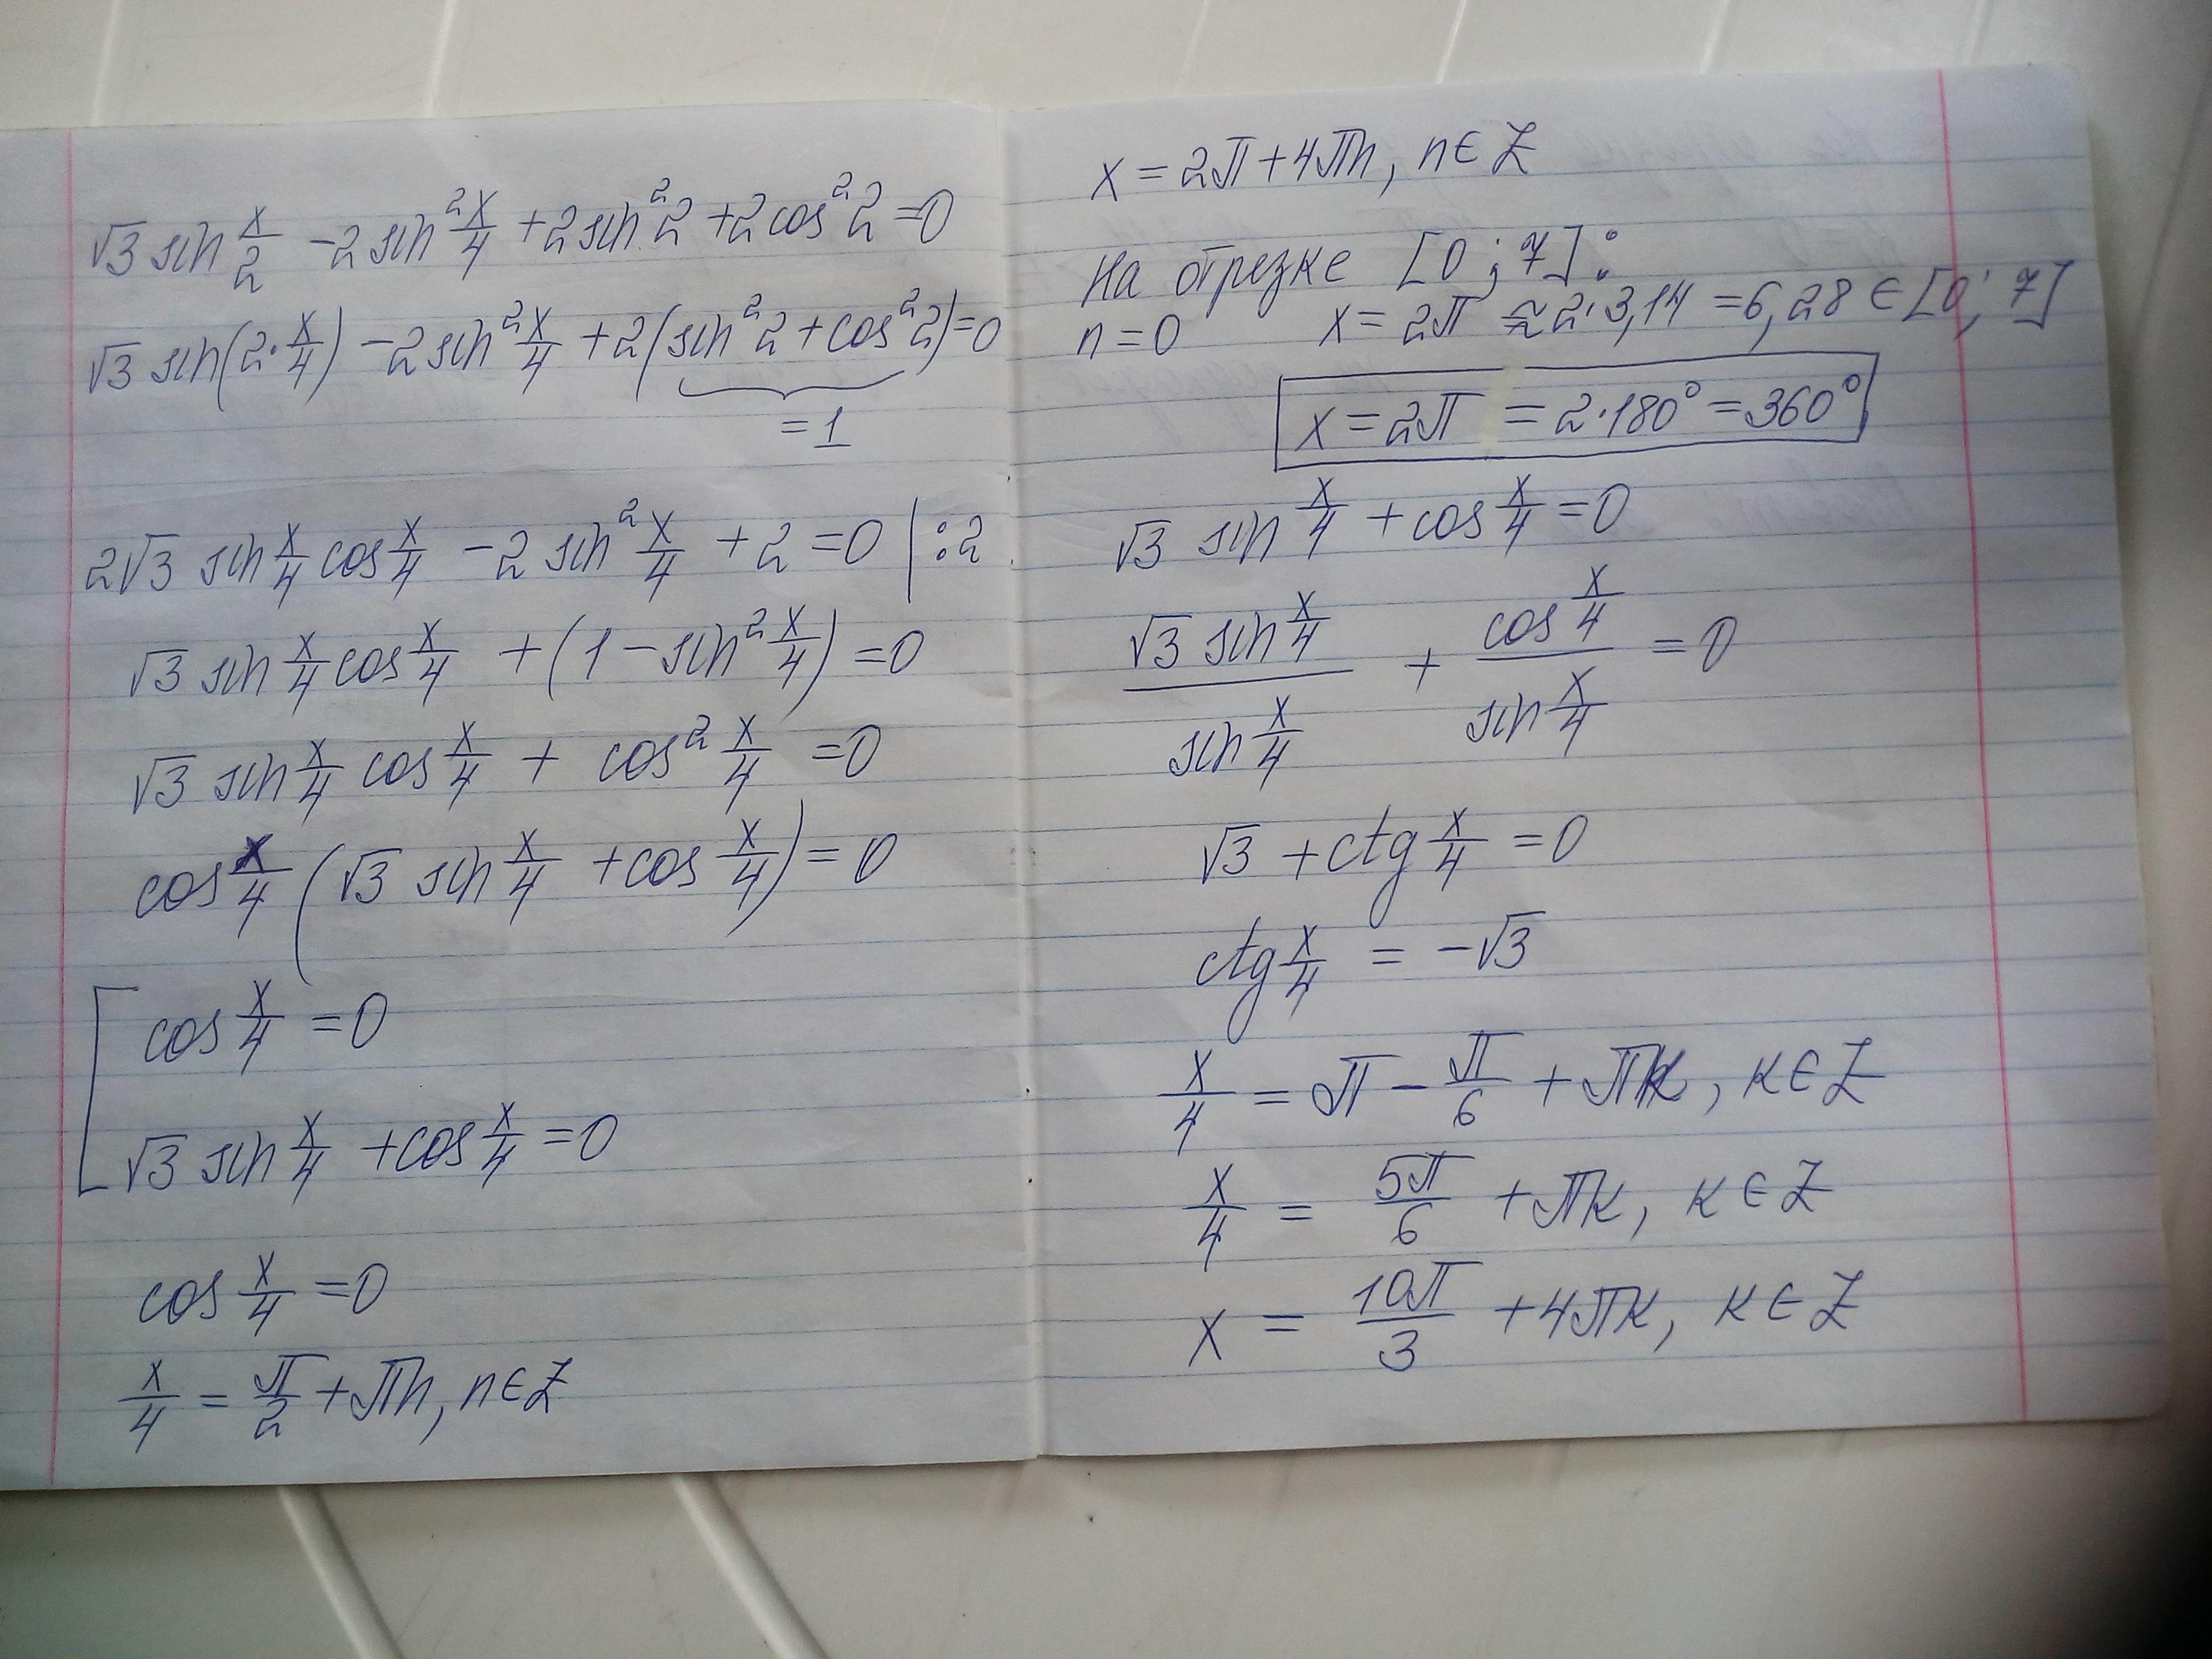 √3 sin x/2 − 2 sin² x/4 + 2 sin² 2 + 2 cos² 2 = 0
√3 sin(2·x/4) − 2 sin² x/4 + 2(sin² 2 + cos² 2) = 0
= 1
2√3 sin x/4 cos x/4 − 2 sin² x/4 + 2 = 0 | :2
√3 sin x/4 cos x/4 + (1 − sin² x/4) = 0
√3 sin x/4 cos x/4 + cos² x/4 = 0
cos x/4 (√3 sin x/4 + cos x/4) = 0
[ cos x/4 = 0
√3 sin x/4 + cos x/4 = 0
cos x/4 = 0
x/4 = π/2 + πn, n ∈ Z
x = 2π + 4πn, n ∈ Z
На отрезке [0; 7]:
n = 0 x = 2π ≈ 2·3,14 = 6,28 ∈ [0; 7]
x = 2π = 2·180° = 360°
√3 sin x/4 + cos x/4 = 0
√3 sin x/4 / sin x/4 + cos x/4 / sin x/4 = 0
√3 + ctg x/4 = 0
ctg x/4 = −√3
x/4 = π − π/6 + πк, к ∈ Z
x/4 = 5π/6 + πк, к ∈ Z
x = 10π/3 + 4πк, к ∈ Z